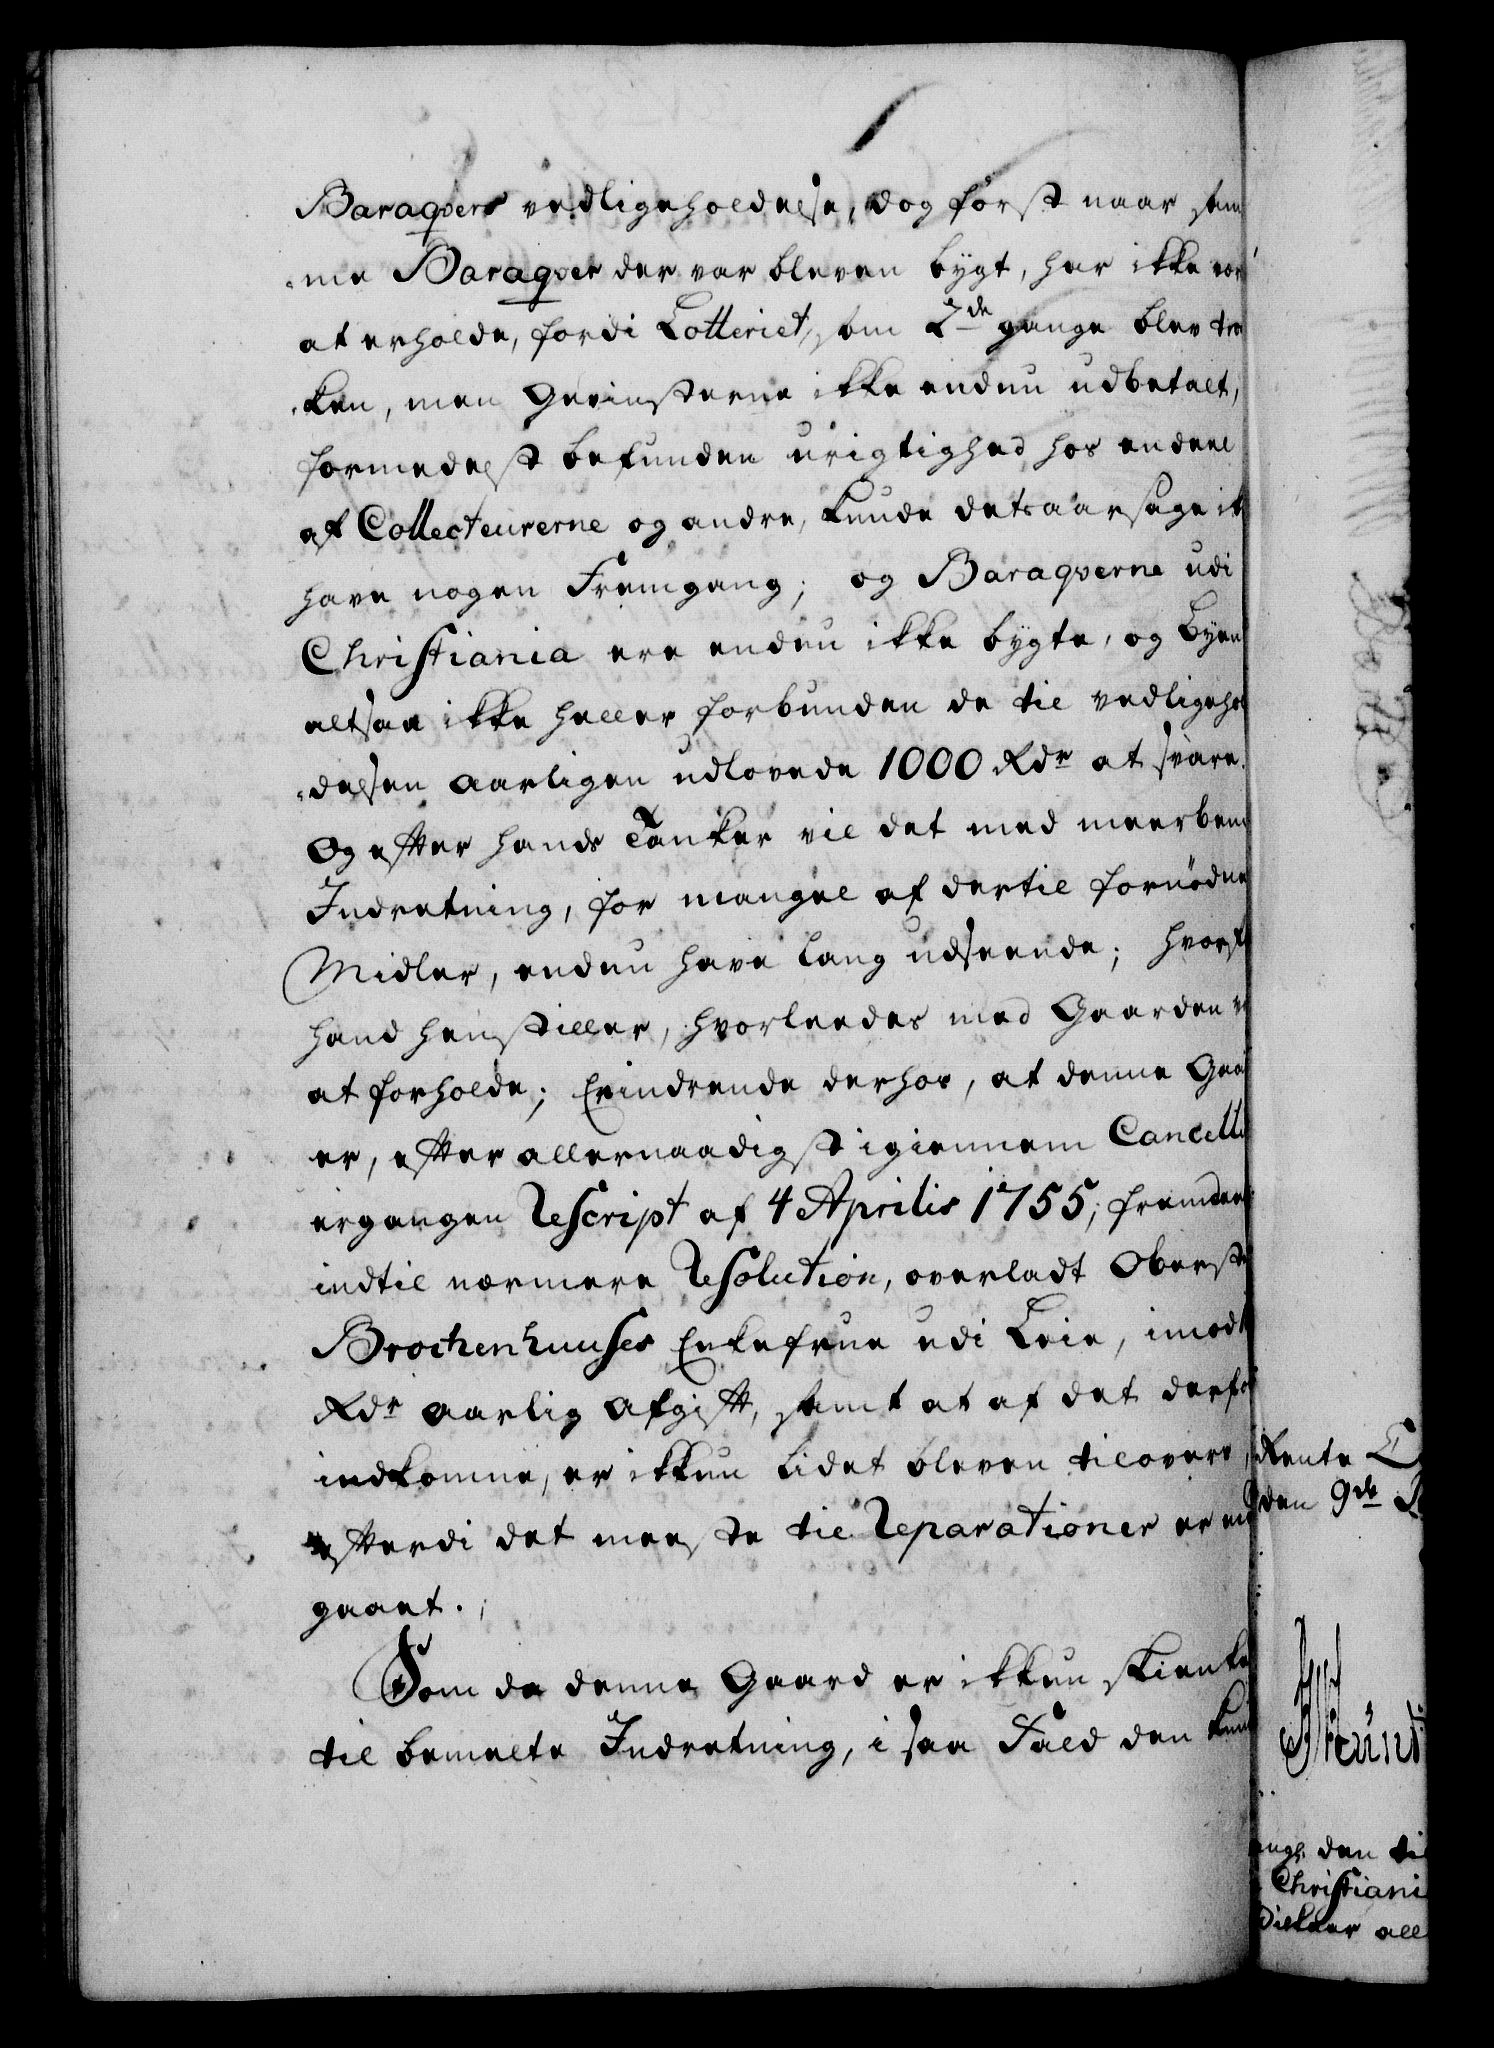 Baraqvers vedligeholdelse, dog først naar sam
-me Baraqver der var bleven bygt, har ikke vor
at erholde, fordi Lotteriet, som 2de gange blev tra
-ken, men Gevinsterne ikke endnu udbetalt,
formedelst befunden urigtighed hos endeel
af Collecteurerne og andre, kunde detsaarsage ik
have nogen Fremgang; og Baraqverne udi
Christiania ere endnu ikke bygte, og Byen
altsaa ikke heller forbunden de til vedligehol
-delsen aarligen udlovede 1000 Rdr at svare.
Og efter hands Tanker vil det med meerbem
Indretning, for mangel af dertil fornødne
Midler, endnu have lang udseende; hvorf
hand henstiller, hvorleedes med Gaarden vi
at forholde; Erindrende derhos, at denne Gaa
er, efter allernaadigst igiennem Cancelli
ergangen Rescript af 4 Aprilis 1755, fremdeel
indtil nærmere Resolution, overladt Oberst
Brochenhuuses Enkefrue udi Leie, imod
Rdr aarlig Afgift, samt at af det derfo
indkomne, er ikkun lidet bleven tilovers,
efterdi det meeste til Reparationer er me
gaaet.
Som da denne Gaard er ikkun skienke
til bemelte Indretning, i saa Fald den kun
Rente C
den 9de
den til
Christiani
all